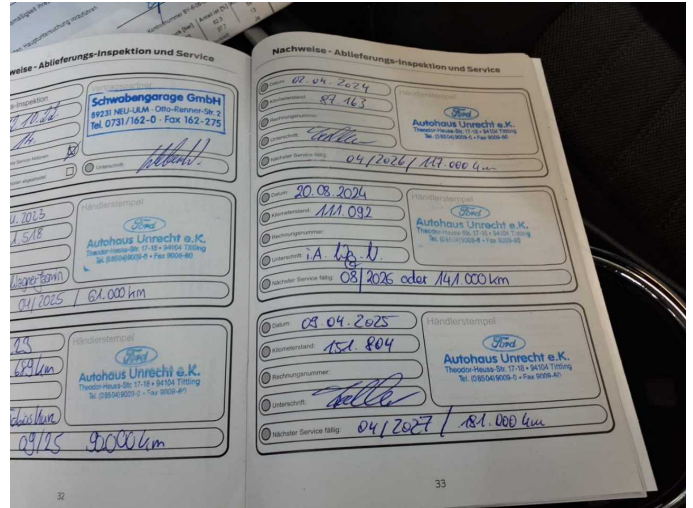 Hauptuntersuchung vorzuführen
weise - Ablieferungs-Inspektion und Service
Schwabengarage GmbH
89231 NEU-ULM · Otto-Renner-Str. 2
Tel. 0731/162-0 · Fax 162-275
Unterschrift:
2023
1.518
04/2025 / 61.000 km
Händlerstempel
Ford
Autohaus Unrecht e.K.
Theodor-Heuss-Str. 17-18 • 94104 Tittling
Tel. (08504)9009-0 • Fax 9009-60
23
689 km
09/25 90.000 km
Händlerstempel
Ford
Autohaus Unrecht e.K.
Theodor-Heuss-Str. 17-18 • 94104 Tittling
Tel. (08504)9009-0 • Fax 9009-60
32
Nachweise - Ablieferungs-Inspektion und Service
Datum: 02.04.2024
Kilometerstand: 87.163
Rechnungsnummer:
Unterschrift:
Nächster Service fällig: 04/2026/117.000 km
Händlerstempel
Ford
Autohaus Unrecht e.K.
Theodor-Heuss-Str. 17-18 • 94104 Tittling
Tel. (08504)9009-0 • Fax 9009-60
Datum: 20.08.2024
Kilometerstand: 111.092
Rechnungsnummer:
Unterschrift: i.A.
Nächster Service fällig: 08/2026 oder 141 000 km
Händlerstempel
Ford
Autohaus Unrecht e.K.
Theodor-Heuss-Str. 17-18 • 94104 Tittling
Tel. (08504)9009-0 • Fax 9009-60
Datum: 09.04.2025
Kilometerstand: 151.804
Rechnungsnummer:
Unterschrift:
Nächster Service fällig: 04/2027 / 181.000 km
Händlerstempel
Ford
Autohaus Unrecht e.K.
Theodor-Heuss-Str. 17-18 • 94104 Tittling
Tel. (08504)9009-0 • Fax 9009-60
33